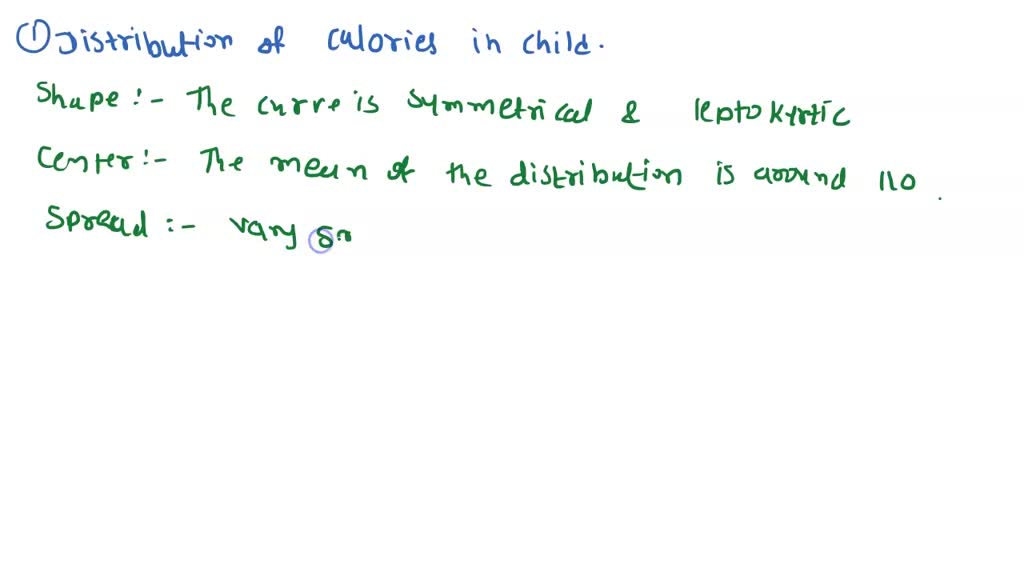 ① Distribution of calories in child.
Shape :- The curve is symmetrical & leptokyrtic
Center :- The mean of the distribution is around 110 .
Spread :- vary